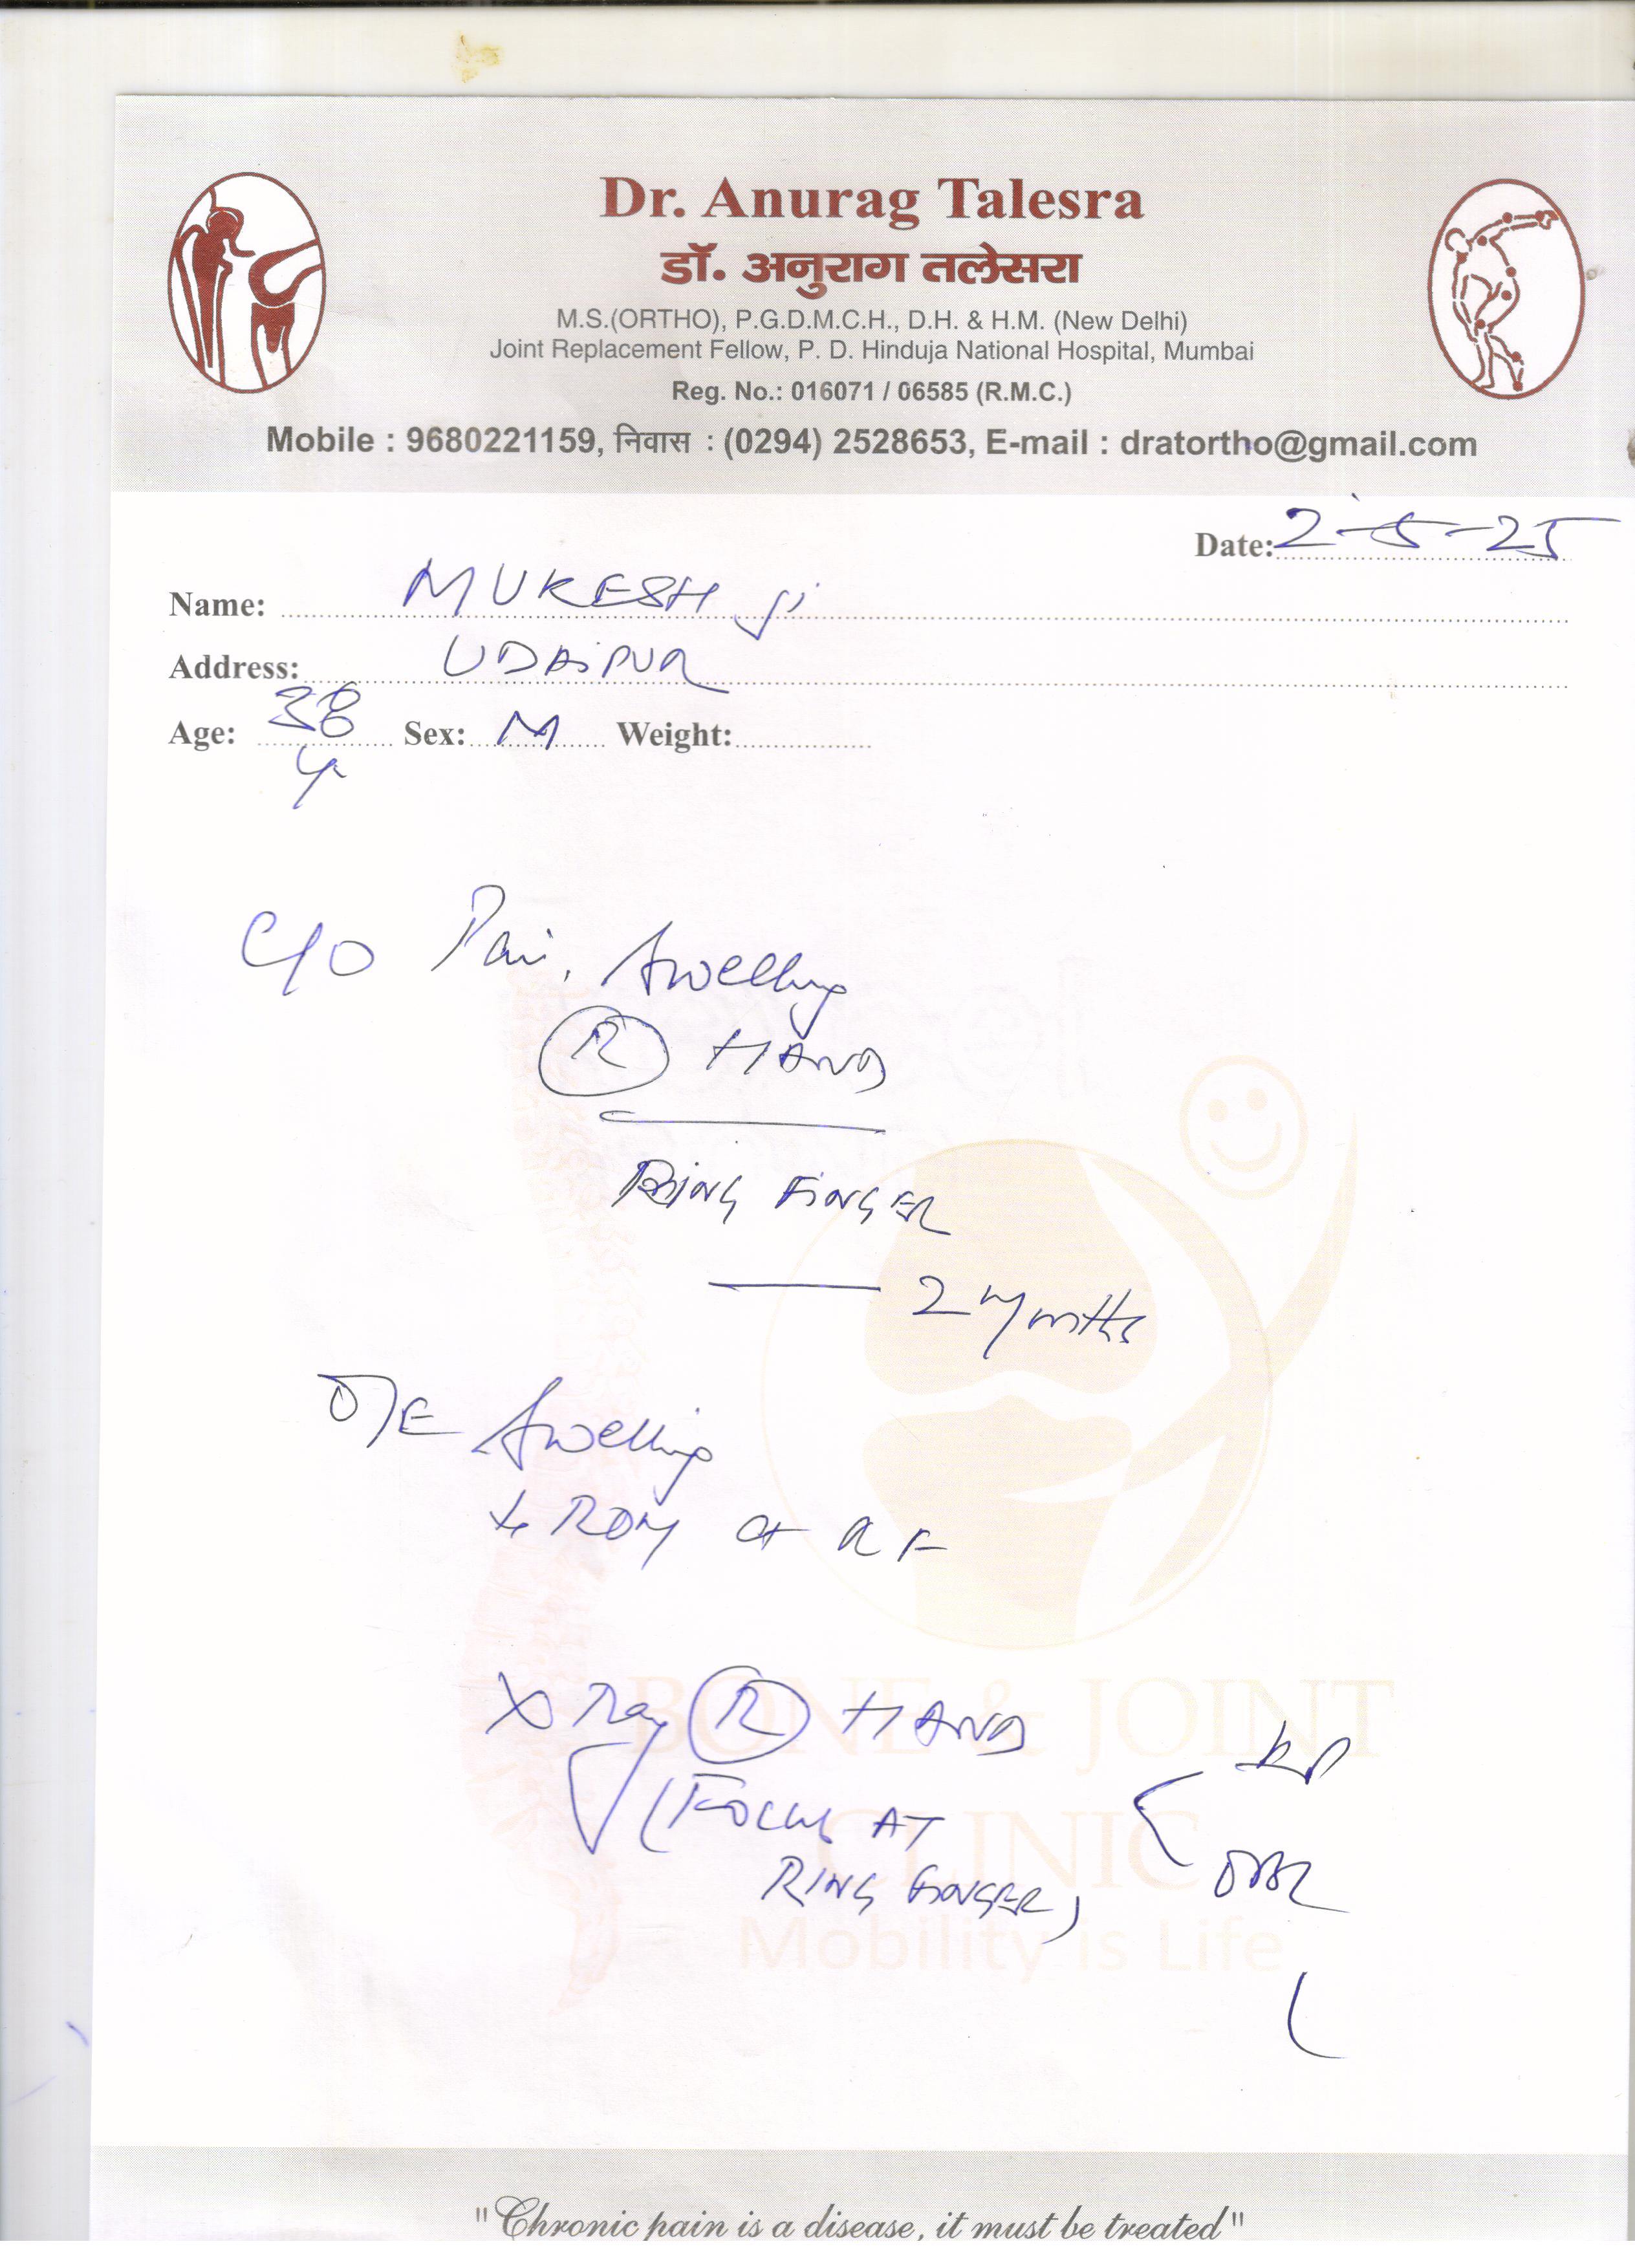 Dr. Anurag Talesra
डॉ. अनुराग तलेसरा
M.S.(ORTHO), P.G.D.M.C.H., D.H. & H.M. (New Delhi)
Joint Replacement Fellow, P. D. Hinduja National Hospital, Mumbai
Reg. No.: 016071 / 06585 (R.M.C.)
Mobile : 9680221159, निवास : (0294) 2528653, E-mail : dratortho@gmail.com
Date: 2-5-25
Name: MUKESH ji
Address: UDAIPUR
Age: 38 Sex: M Weight:
C/O Pain, Swelling
R HAND
RING FINGER
2 months
O/E Swelling
ROM of RF
X Ray R HAND
(FOCUS AT
RING FINGER)
BONE & JOINT
CLINIC
Mobility is Life
"Chronic pain is a disease, it must be treated"